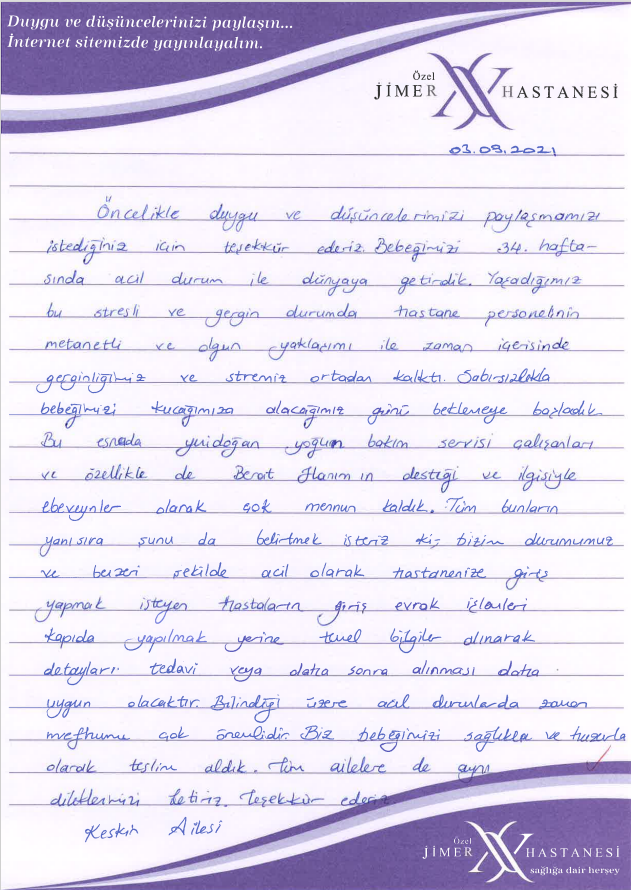 Duygu ve düşüncelerinizi paylaşın...
İnternet sitemizde yayınlayalım.
Özel
JİMER HASTANESİ
03.09.2021
Öncelikle duygu ve düşüncelerimizi paylaşmamızı
istediğiniz için teşekkür ederiz. Bebeğimizi 34. hafta-
sında acil durum ile dünyaya getirdik. Yaşadığımız
bu stresli ve gergin durumda hastane personelinin
metanetli ve olgun yaklaşımı ile zaman içerisinde
gerginliğimiz ve stremiz ortadan kalktı. Sabırsızlıkla
bebeğimizi kucağımıza alacağımız günü beklemeye başladık.
Bu esnada yenidoğan yoğun bakım servisi çalışanları
ve özellikle de Berat Hanım ın desteği ve ilgisiyle
ebeveynler olarak çok memnun kaldık. Tüm bunların
yanısıra şunu da belirtmek isteriz ki; bizim durumumuz
ve benzeri şekilde acil olarak hastanenize giriş
yapmak isteyen hastaların giriş evrak işlemleri
kapıda yapılmak yerine temel bilgiler alınarak
detayları tedavi veya daha sonra alınması daha
uygun olacaktır. Bilindiği üzere acil durumlarda zaman
mefhumu çok önemlidir. Biz bebeğimizi sağlıkla ve huzurla
olarak teslim aldık. Tüm ailelere de aynı
dileklerimizi iletiriz. Teşekkür ederiz.
Keskin Ailesi
Özel
JİMER HASTANESİ
sağlığa dair herşey